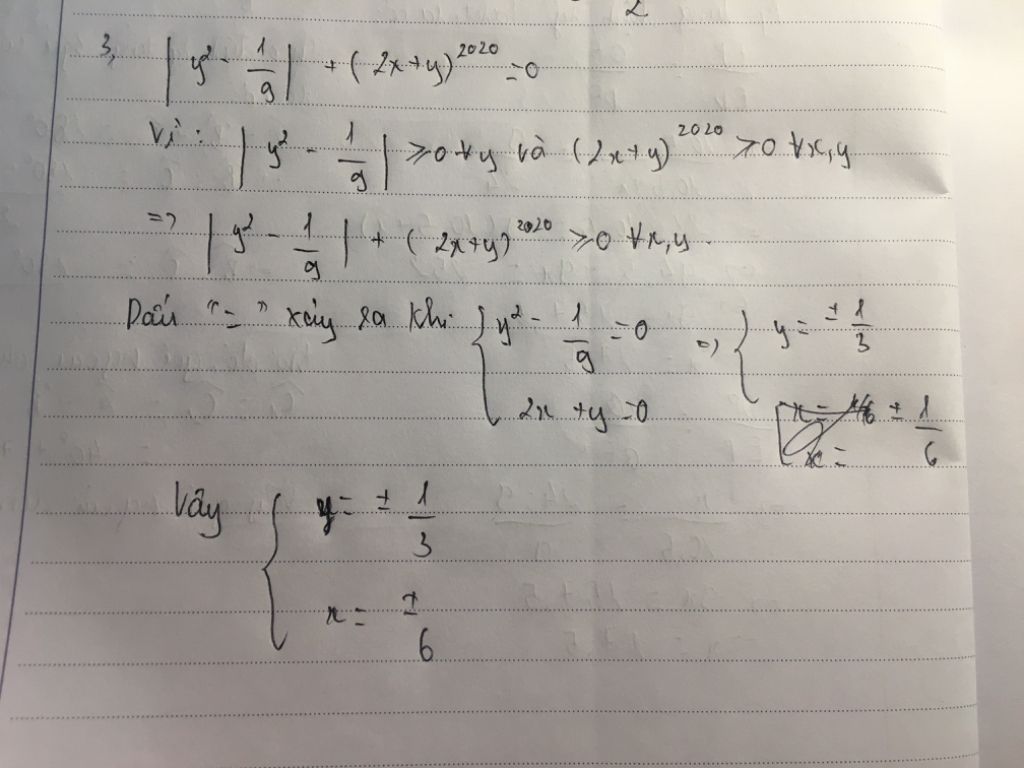 2
3, | y² - 1/9 | + ( 2x+y)^2020 = 0
Vì: | y² - 1/9 | ⩾0 ∀y và (2x+y)^2020 ⩾0 ∀x,y
=> | y² - 1/9 | + ( 2x+y)^2020 ⩾0 ∀x,y.
Dấu "=" xảy ra khi { y² - 1/9 = 0 => { y = ± 1/3
2x + y = 0 x = ± 1/6
x =
Vậy { y = ± 1/3
x = ± 6